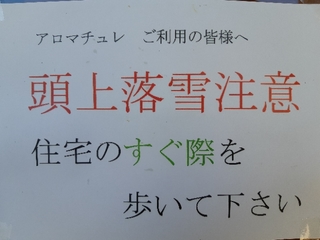 アロマチュレ　ご利用の皆様へ
頭上落雪注意
住宅のすぐ際を
歩いて下さい